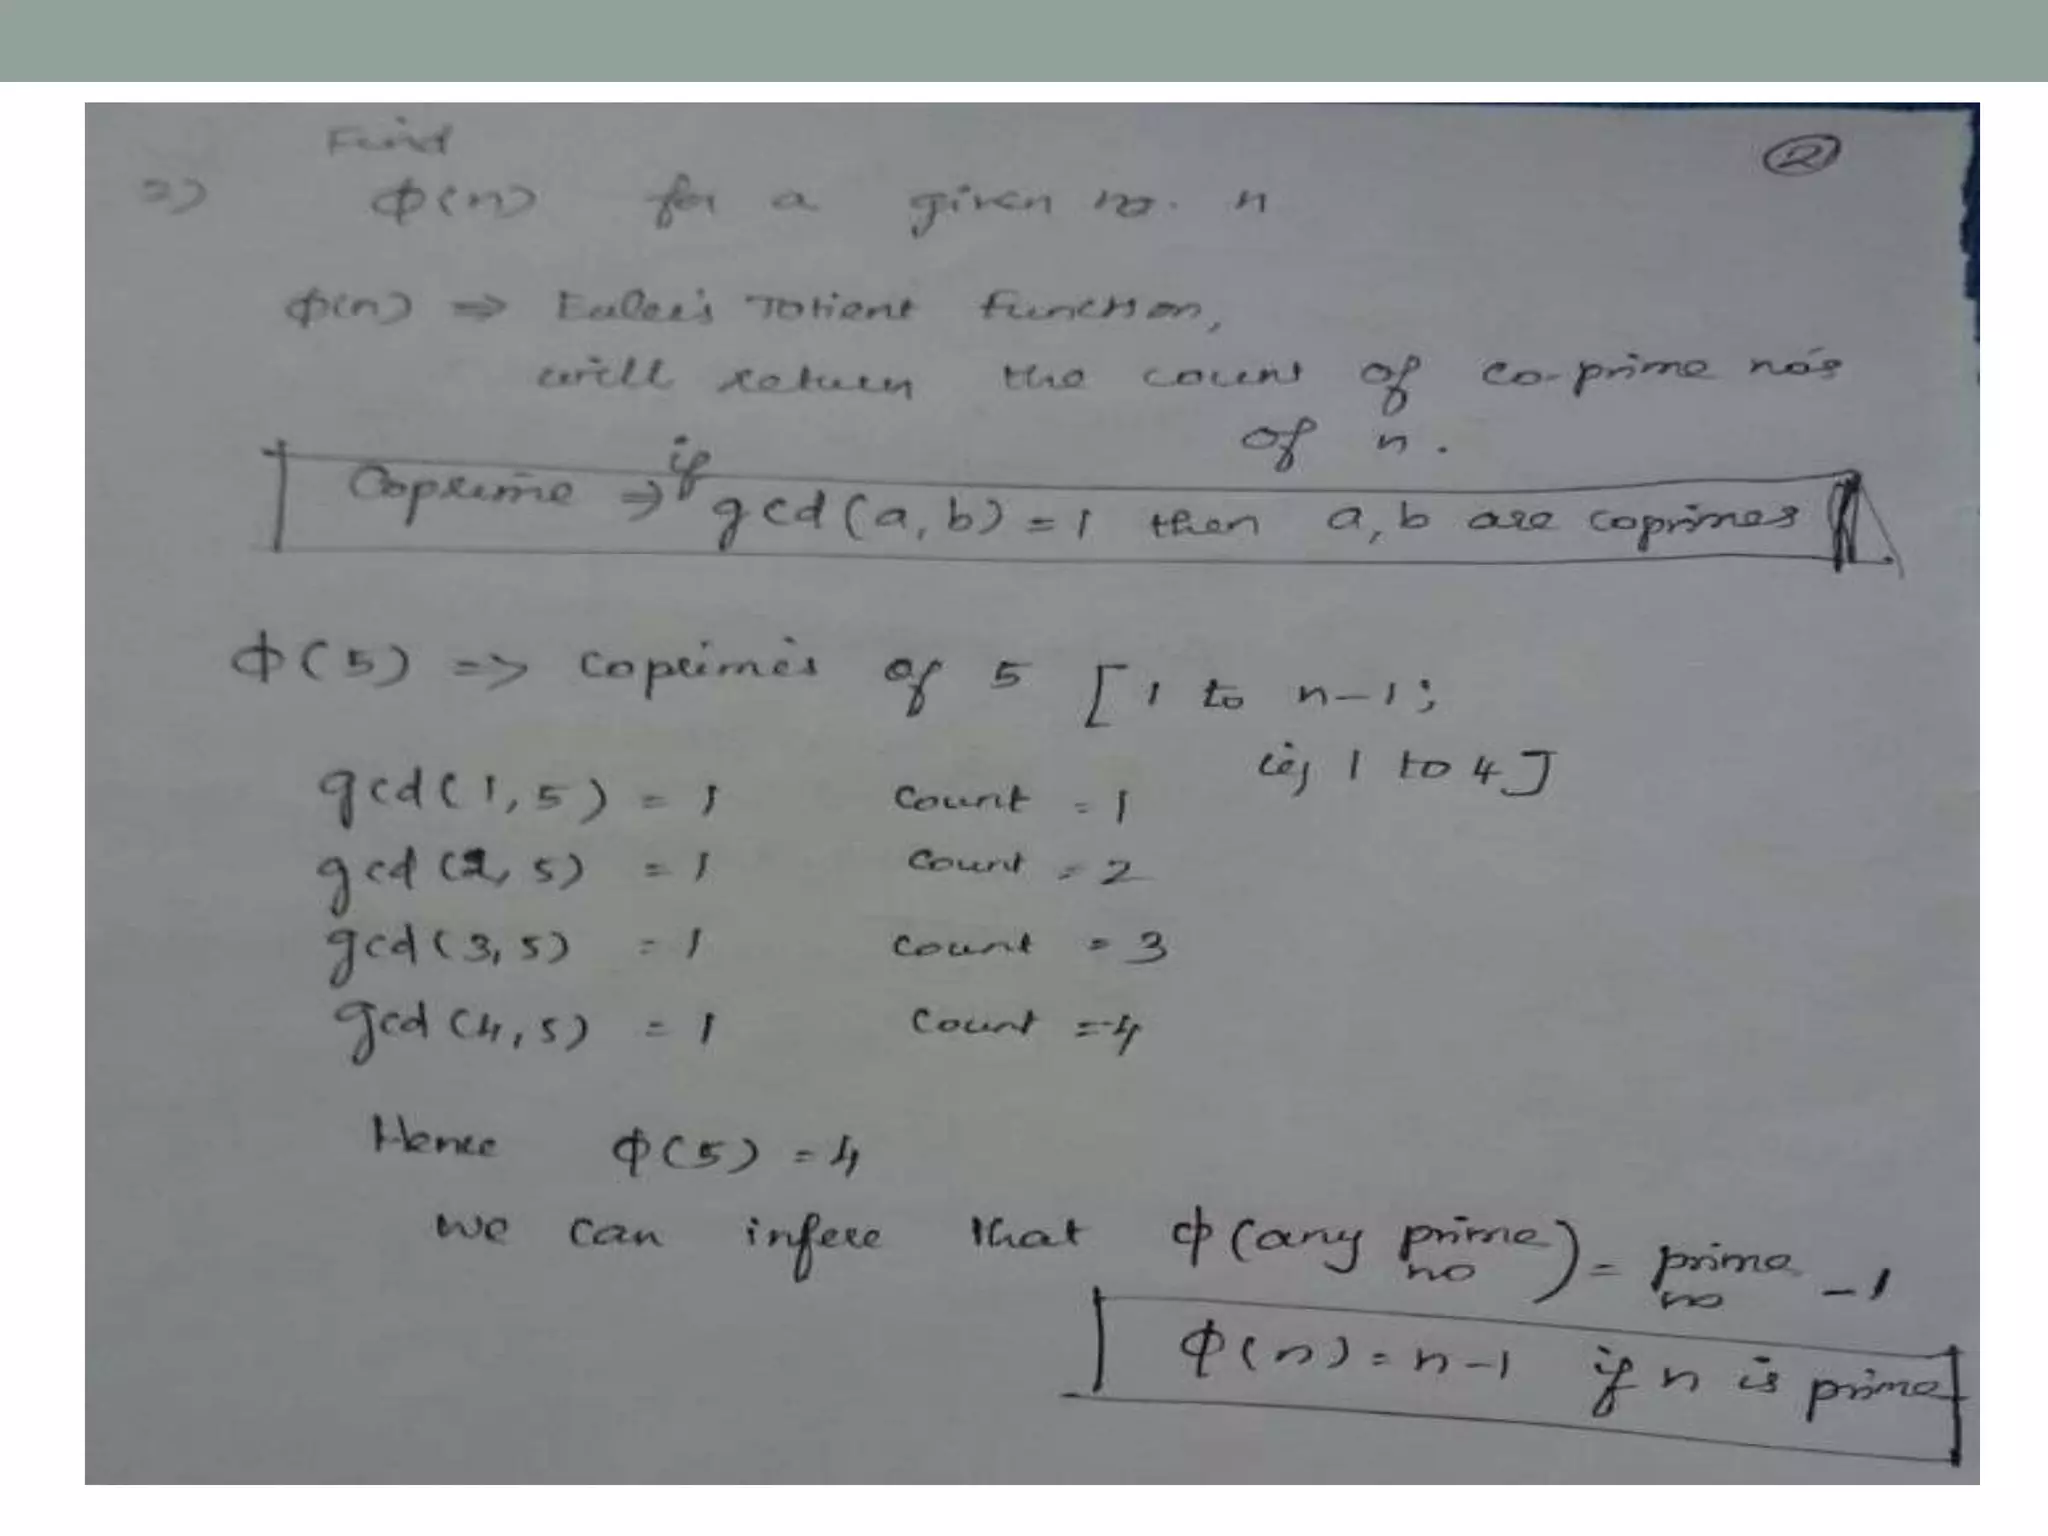 Find
②
2) ϕ(n) for a given no. n
ϕ(n) ⇒ Euler's Totient Function,
will return the count of co-prime no's
of n.
Coprime ⇒ if gcd(a,b) = 1 then a, b are coprimes
ϕ(5) => Coprimes of 5 [1 to n-1;
ie, 1 to 4]
gcd(1,5) = 1 Count = 1
gcd(2,5) = 1 Count = 2
gcd(3,5) = 1 Count = 3
gcd(4,5) = 1 Count = 4
Hence ϕ(5) = 4
we can infere that ϕ(any prime no) = prime no - 1
ϕ(n) = n-1 if n is prime